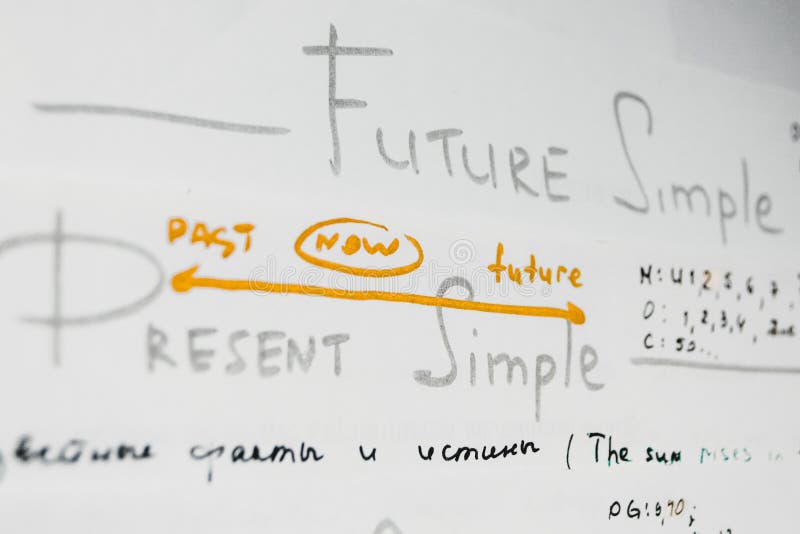 Future Simple
PAST NOW future
Present Simple
М: U1,2,5,6,7
D: 1,2,3,4,
C: 50...
факты и истины (The sun rises in
DG: 9,10;